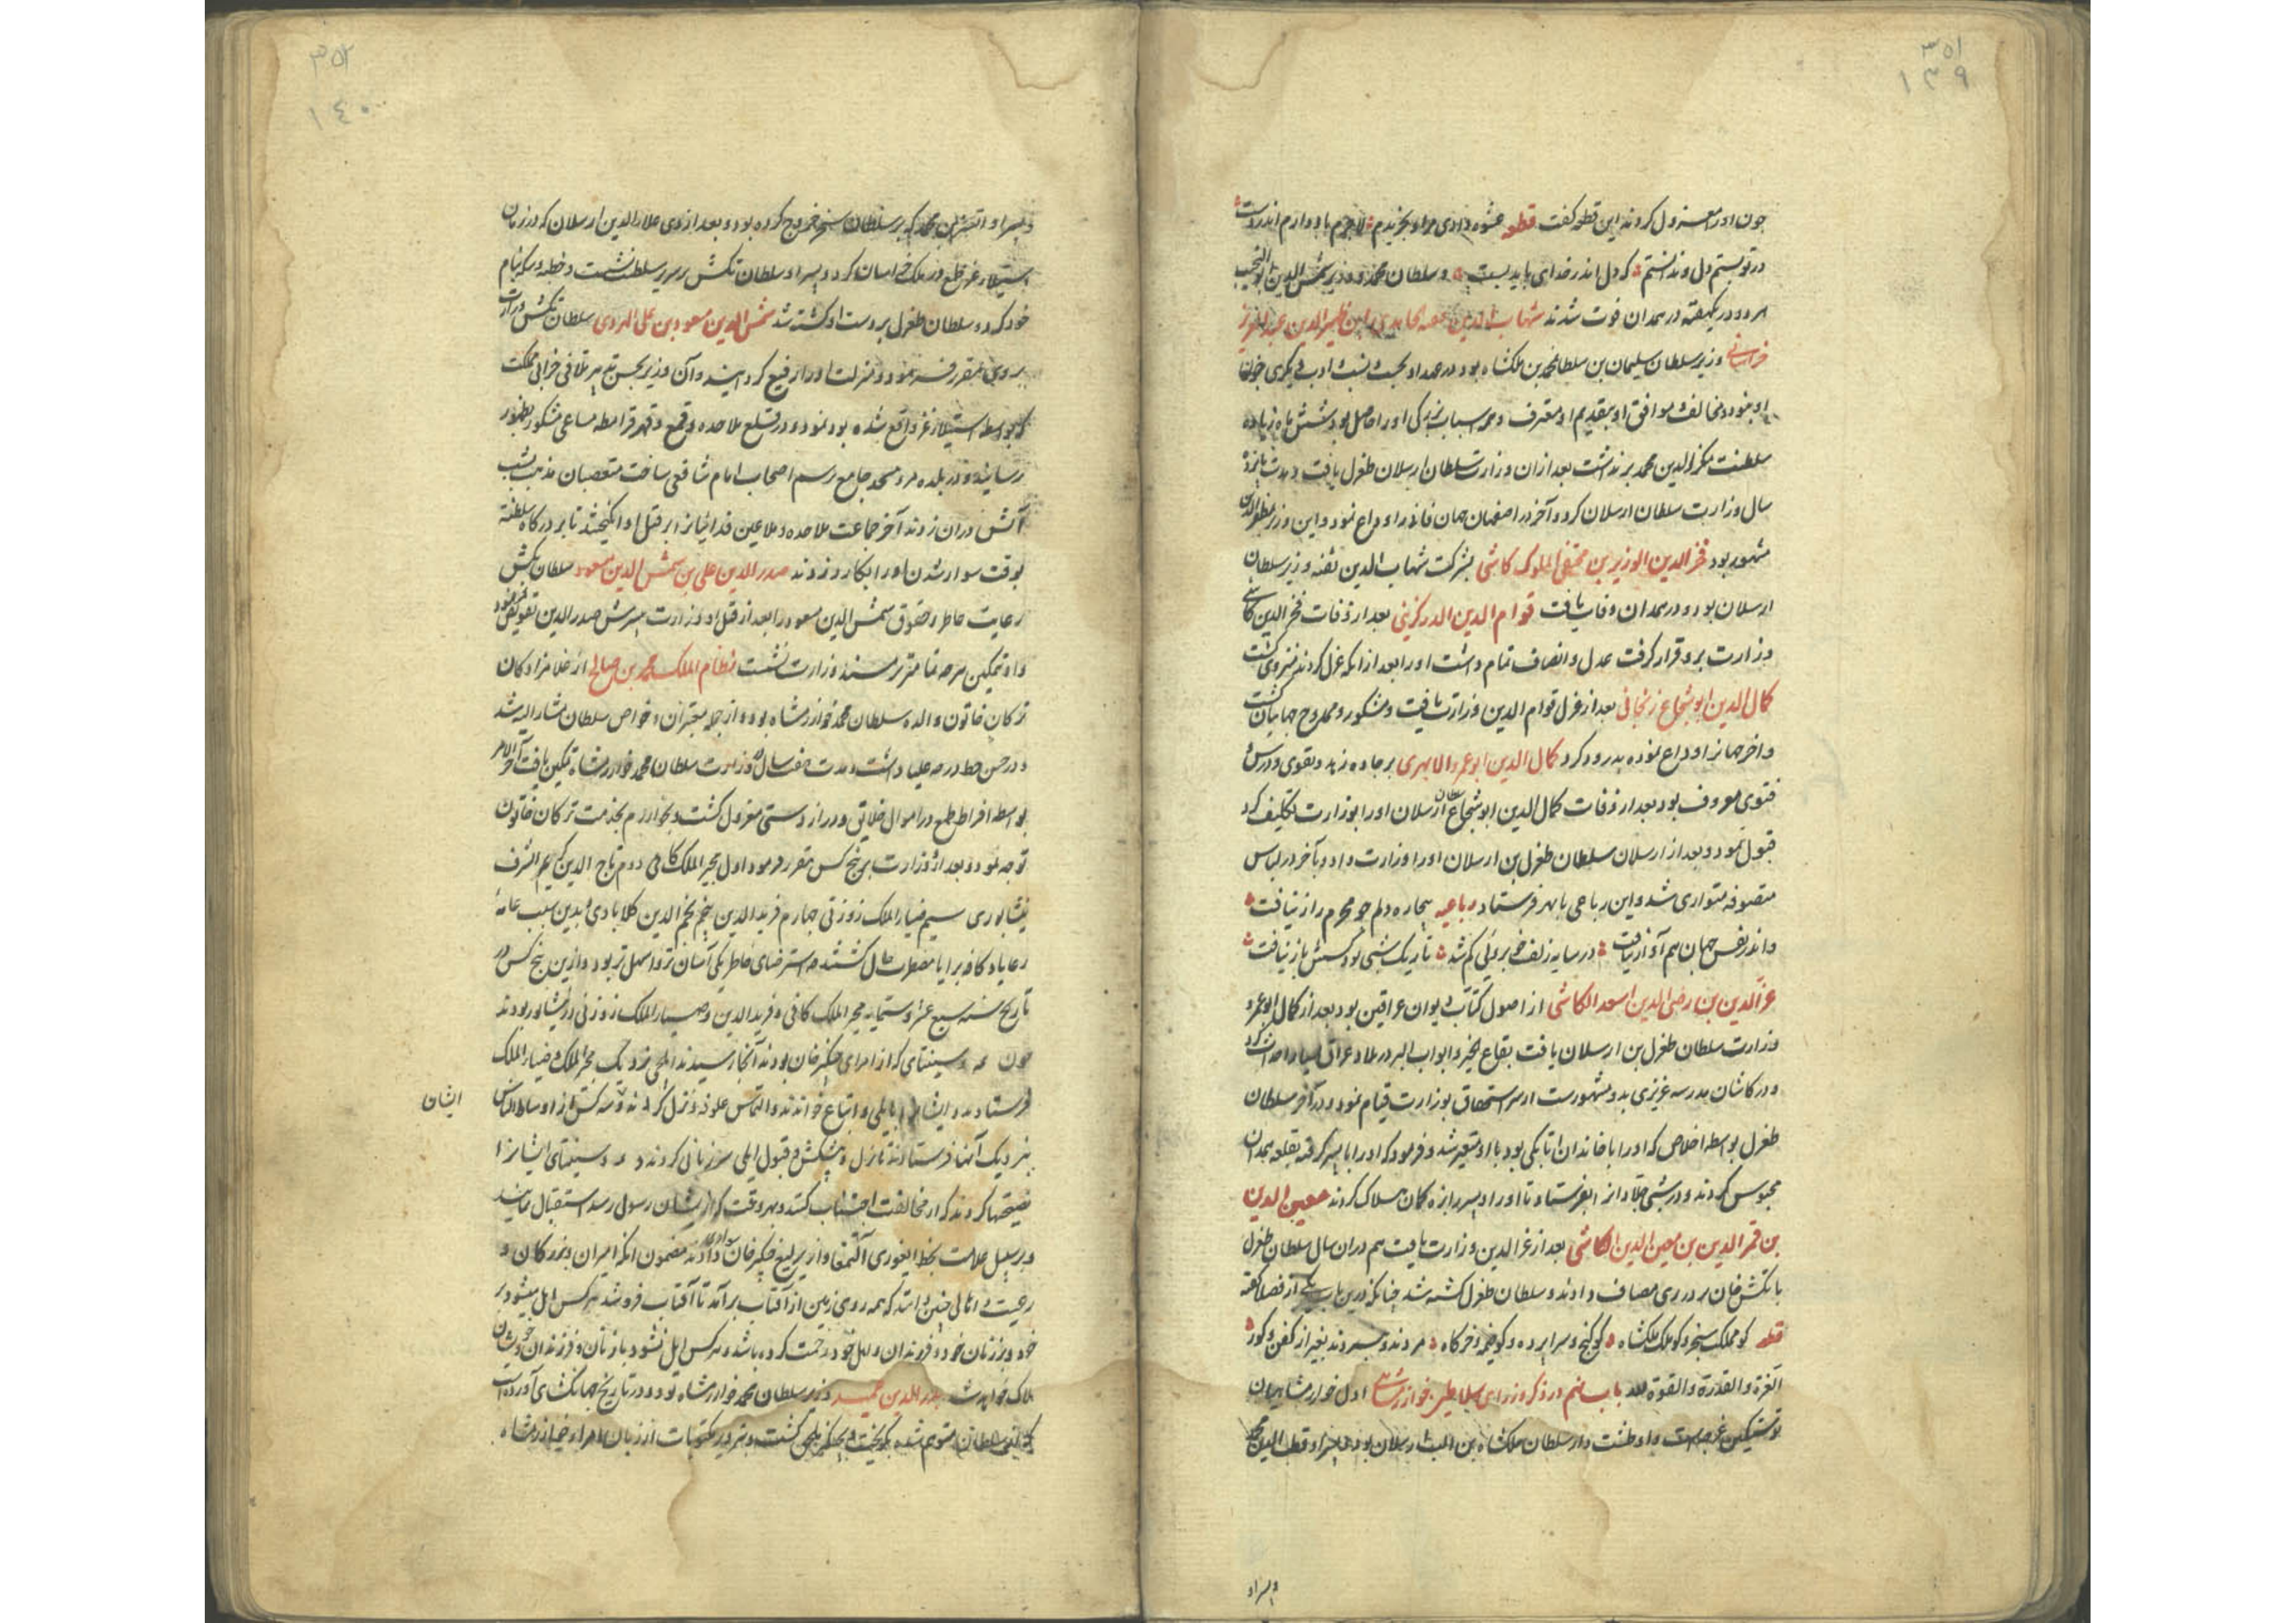 ۳۵۱
۱۳۹
چون او را معزول کردند این قطعه کفت قطعه عشوه دادی مرا و بخریدم لاجرم باد دارم اندر دست
در تو بستم دل و ندانستم که دل اندر خدای باید بست و سلطان محمد و وزیر شمس الدین ابو النجیب
هر دو در یکهفته در همدان فوت شدند شهاب الدین ثقه الحامدی ابن ظهیر الدین عبد العزیز
خراسانی وزیر سلطان سلیمان بن سلطان محمد بن ملکشاه بود در عهد او بحسب و نسب و ادب دیکری چون
او نبود و مخالف و موافق او بتقدیم او معترف و همه اسباب بزرکی او را حاصل بود شش ماه زیاده
سلطنت محمد برنداشت بعد ازان وزارت سلطان ارسلان طغرل یافت و مدت پانزده
سال وزارت سلطان ارسلان کرد و آخر در اصفهان جهان فانی را وداع نمود و این وزیر
مشهور بود فخر الدین الوزیر بن مختص الملوک کاشی بشرکت شهاب الدین ثقه وزیر سلطان
ارسلان بود و در همدان وفات یافت قوام الدین الدرکزینی بعد از وفات فخر الدین کاشی
وزارت برو قرار کرفت عدل و انصاف تمام داشت او را بعد ازانکه عزل کردند منزوی کشت
کمال الدین ابو شجاع زنجانی بعد از عزل قوام الدین وزارت یافت و مشکور و ممدوح جهانیان کشت
و آخر جهان را وداع نموده بدرود کرد کمال الدین ابو عمرو الابهری بر جاده زهد و تقوی و درس و
فتوی معروف بود بعد از وفات کمال الدین ابو شجاع سلطان ارسلان او را بوزارت تکلیف کرد
قبول نمود و بعد از ارسلان سلطان طغرل بن ارسلان او را وزارت داد و بآخر در لباس
متصوفه متواری شد و این رباعی بابهر فرستاد رباعیه بیچاره دلم چو محرم راز نیافت
و اندر قفس جهان هم آواز نیافت در سایه زلف خوبروئی کم شد تاریک شبی بود کسش باز نیافت
عز الدین بن رضی الدین اسعد الکاشی از اصول کتاب دیوان عراقین بود بعد از کمال ابو عمرو
وزارت سلطان طغرل بن ارسلان یافت بقاع الخیر و ابواب البر در بلاد عراق بسیار احداث کرد
و در کاشان مدرسه عزیزی بدو مشهورست از سر استحقاق بوزارت قیام نمود و در آخر سلطان
طغرل بواسطه اخلاص که او را با خاندان اتابکی بود با او متغیر شد و فرمود که او را با پسر کرفته بقلعه همدان
محبوس کردند و در شبی جلاد از ابهر فرستاد تا او را و پسر را بزه کمان هلاک کردند معین الدین
بن فخر الدین بن معین الدین الکاشی بعد از عز الدین وزارت یافت هم دران سال سلطان طغرل
با تکش خان بر در ری مصاف دادند و سلطان طغرل کشته شد چنانکه درین باب یکی از فضلا کفته
قطعه کو مملکت سنجر و کو ملک ملکشاه کو کنج و سراپرده و کو خیمه و خرکاه مردند و نبردند بغیر از کفن و کور
العزة و القدرة و القوة لله باب نهم در ذکر وزرای سلاطین خوارزمشاهی اول خوارزمشاهیان
نوشتکین غرجه است و او طشت دار سلطان ملکشاه بن الب ارسلان بود و پسر او قطب الدین محمد
و پسر او
۳۵۲
۱۴۰
و پسر او اتسز بن محمد که بر سلطان سنجر خروج کرده بود و بعد از وی علاء الدین ارسلان که در زمان
استیلاء غز طمع در ملک خراسان کرد و پسر او سلطان تکش بر سریر سلطنت نشست و خطبه و سکه بنام
خود کرد و سلطان طغرل بر دست او کشته شد شمس الدین مسعود بن علی الهروی سلطان تکش وزارت
بروی مقرر فرمود و منزلت او را رفیع کردانید و آن وزیر بحسن تدبیر تلافی خرابی مملکت
که بواسطه استیلاء غز واقع شده بود نمود و در قلع ملاحده و قمع و قهر قرامطه مساعی مشکور بظهور
رسانید و در بلده مرو مسجد جامع برسم اصحاب امام شافعی ساخت متعصبان مذهب بشب
آتش دران زدند آخر جماعت ملاحده و ملاعین فدائیانرا بر قتل او انکیختند تا بر درکاه سلطنه
بوقت سوار شدن او را بکارد زدند صدر الدین علی بن شمس الدین مسعود سلطان تکش
رعایت خاطر و حقوق شمس الدین مسعود را بعد از قتل او وزارت بپسرش صدر الدین تفویض فرمود
و او بتمکین هر چه تمامتر بر مسند وزارت نشست نظام الملک محمد بن صالح از غلامزادکان
ترکان خاتون والده سلطان محمد خوارزمشاه بود و از جمله معتبران و خواص سلطان مشار الیه شد
و در حسن خط درجه علیا داشت و مدت هفت سال در وزارت سلطان محمد خوارزمشاه تمکین یافت آخر الامر
بواسطه افراط طمع در اموال خلایق و دراز دستی معزول کشت و بخوارزم بخدمت ترکان خاتون
توجه نمود و بعد ازو وزارت بر پنج کس مقرر فرمود اول مجیر الملک کافی دوم تاج الدین کریم الشرف
نیشابوری سیم ضیاء الملک زوزنی چهارم فرید الدین پنجم نجم الدین کلابادی و بدین سبب عامه
رعایا و کافه برایا مضطرب حال کشتند چه استرضای خاطر یکی آسان تر و اسهل تر بود و ازین پنج کس در
تاریخ سنه سبع عشر و ستمایه مجیر الملک کافی و فرید الدین و ضیاء الملک زوزنی در نیشابور بودند
چون یمه و سبتای که از امرای چنکیز خان بودند آنجا رسیدند ایلچی نزدیک مجیر الملک و ضیاء الملک
فرستادند و ایشانرا بایلی و اتباع خواندند و التماس علوفه و نزل کردند و سه کس از اوساط الناس
ایشان
بنزدیک آنها فرستادند تا نزل و پیشکش و قبول ایلی سر زبانی کردند و یمه و سبتای ایشانرا
نصیحتها کردند که از مخالفت اجتناب کنند و هر وقت که از ایشان رسول رسد استقبال نمایند
و بر سبیل علامت بخط ایغوری آلتمغا و از یرلیغ چنکیز خان سوادی دادند مضمون آنکه امیران و بزرکان و
رعیت و اهالی چنین دانند که همه روی زمین از آفتاب برآمد تا آفتاب فروشد هر کس ایل میشود بر
خود و بر زنان خود و فرزندان و اهل خود رحمت کرده باشد و هر کس ایل نشود با زنان و فرزندان و خویشان
هلاک خواهد شد بدر الدین عمید وزیر سلطان محمد خوارزمشاه بود و در تاریخ جهانکشای آورده است
که از سلطان متوهم شده بکریخت و بچنکیز ملحق کشت و تزویر مکتوبات از زبان امراء خوارزمشاه